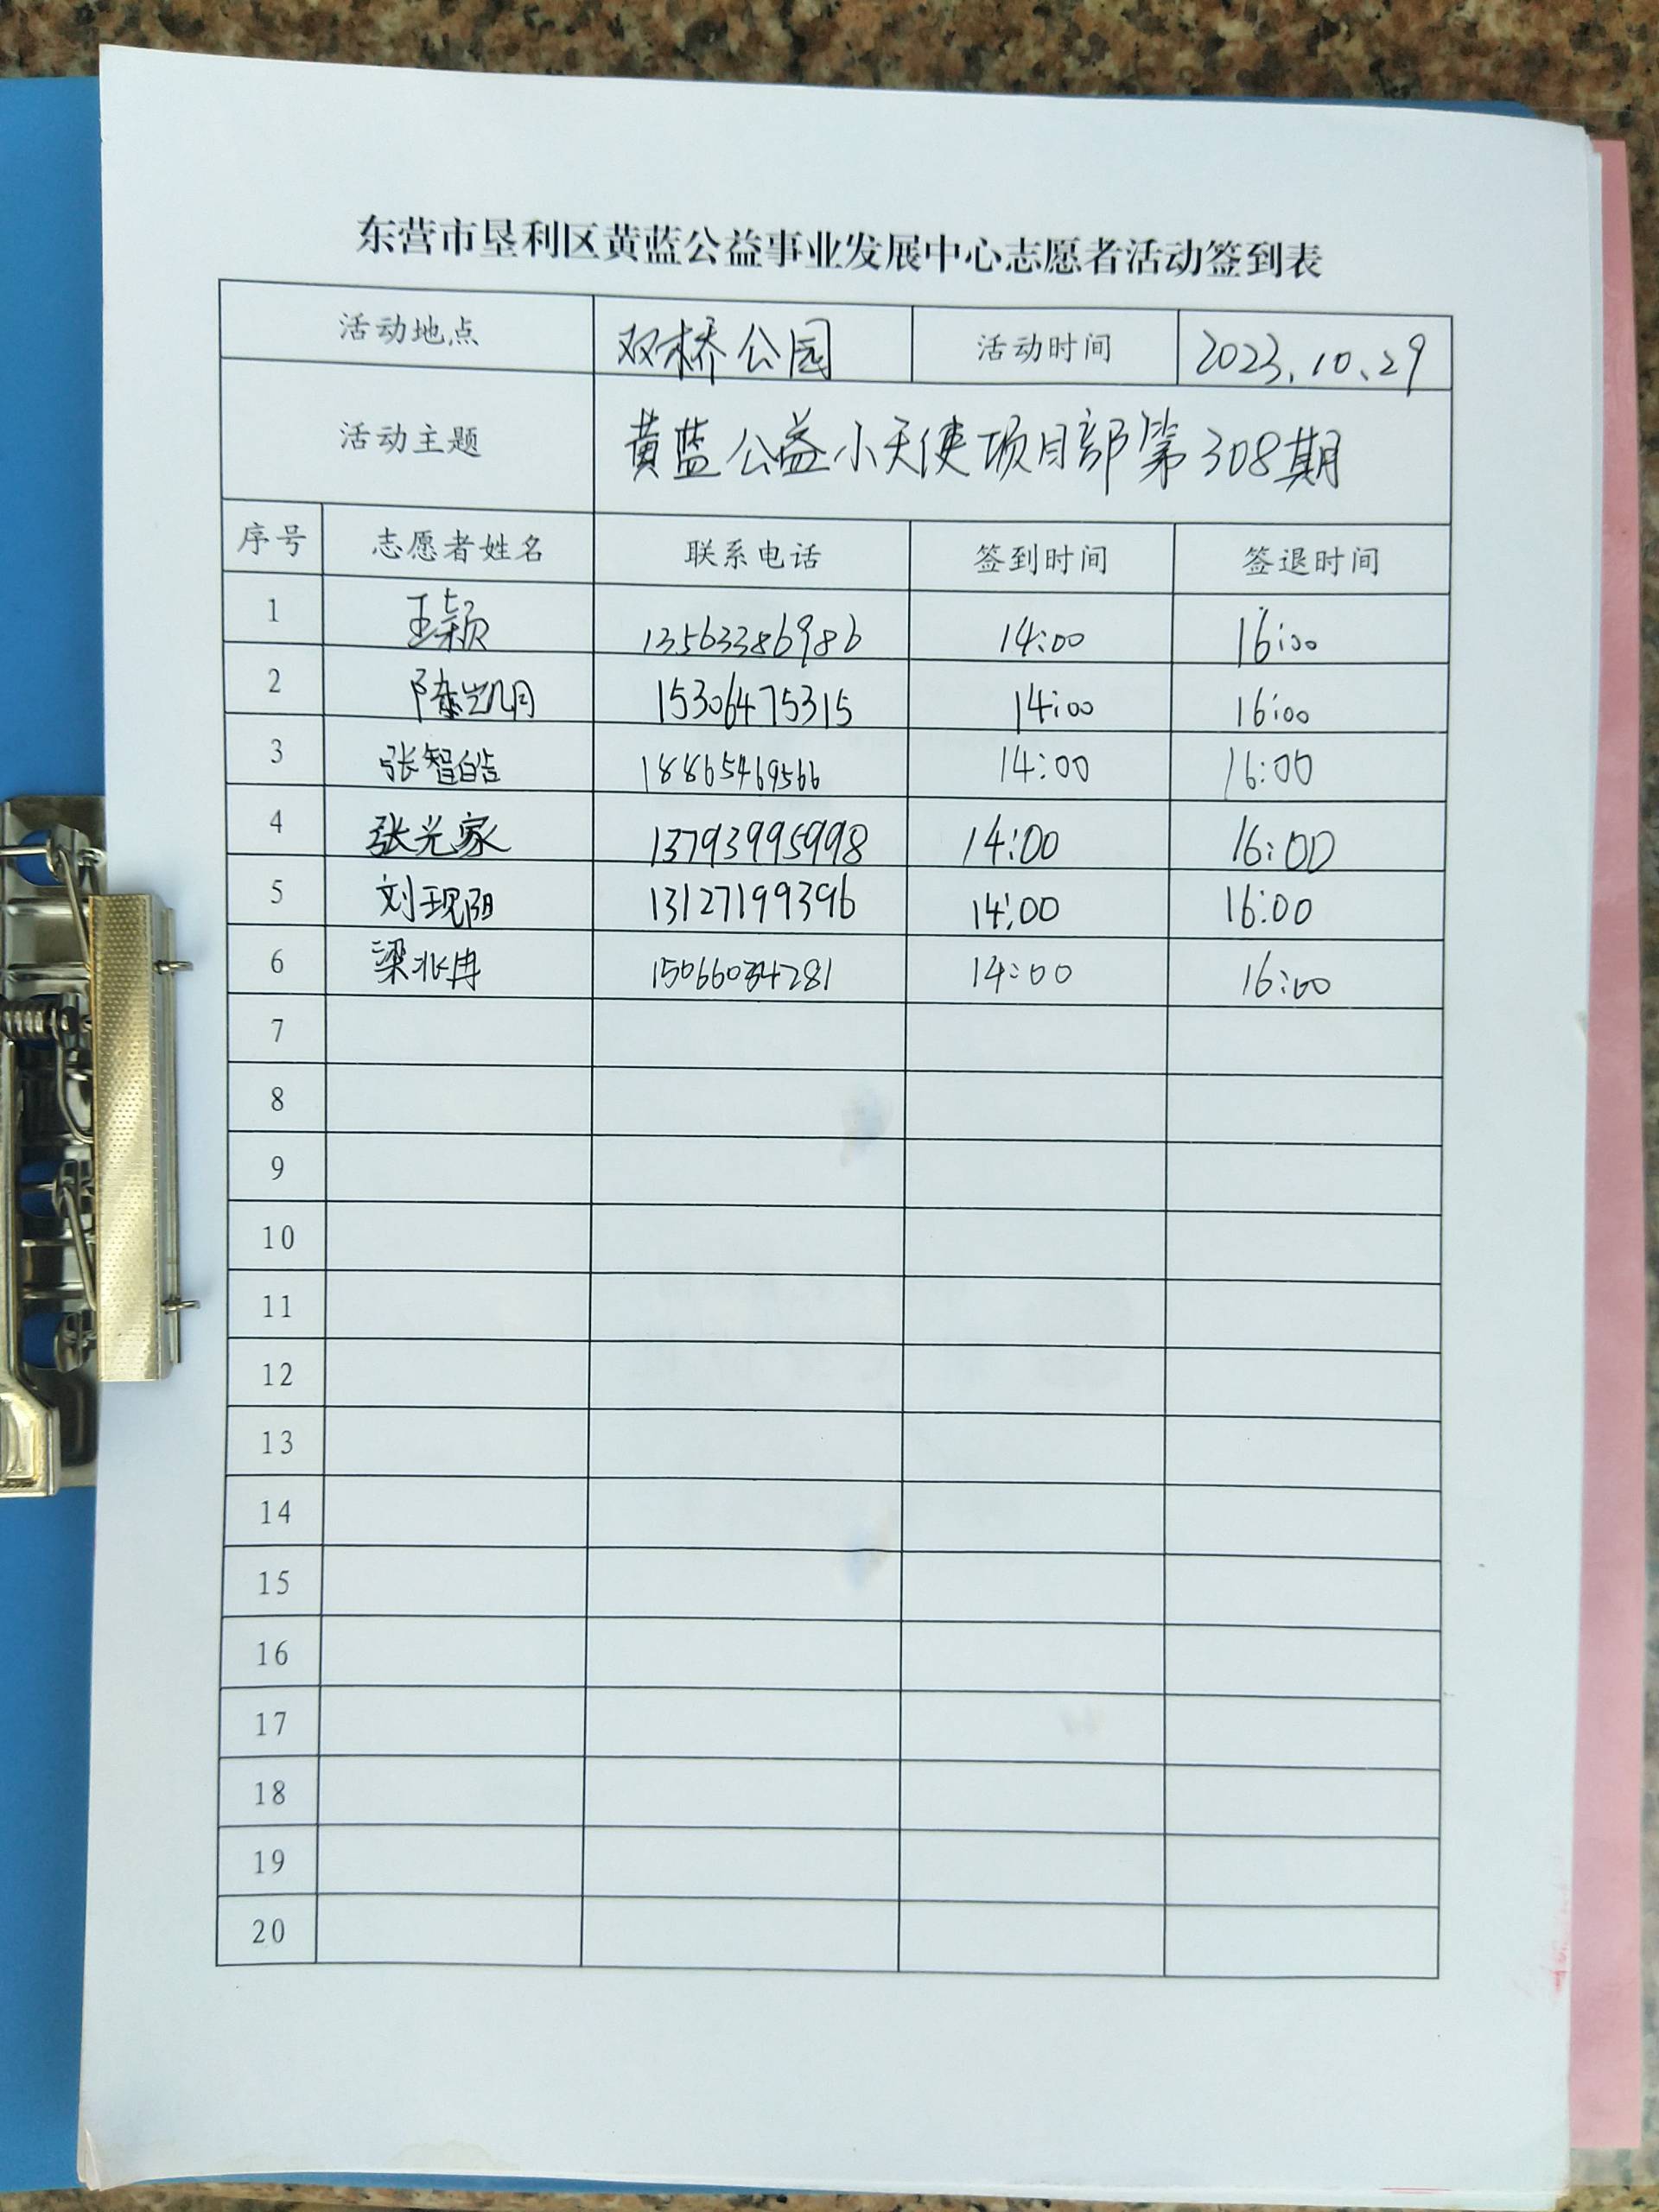 东营市垦利区黄蓝公益事业发展中心志愿者活动签到表
活动地点 双桥公园 活动时间 2023.10.29
活动主题 黄蓝公益小天使项目部第308期
序号 志愿者姓名 联系电话 签到时间 签退时间
1 王颖 13563386986 14:00 16:00
2 陈凯月 15306475315 14:00 16:00
3 张智皓 18865469566 14:00 16:00
4 张光家 13793995998 14:00 16:00
5 刘现阳 13127199396 14:00 16:00
6 梁兆冉 14:00 16:00
7
8
9
10
11
12
13
14
15
16
17
18
19
20